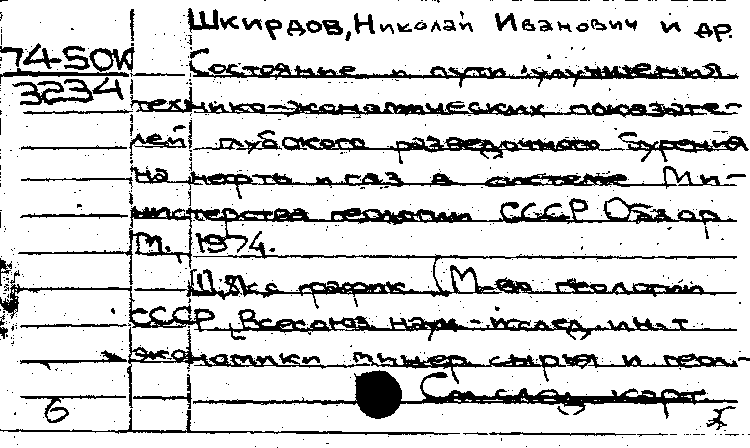 Шкирдов, Николай Иванович и др.
74-50К
3234
Состояние и пути улучшения
технико-экономических показате-
лей глубокого разведочного бурения
на нефть и газ в системе Ми-
нистерства геологии СССР Обзор
М., 1974.
с график. (М-во геологии
СССР. Всесоюз науч-исслед. ин-т
экономики минер сырья и геол.-
См. след. карт
6